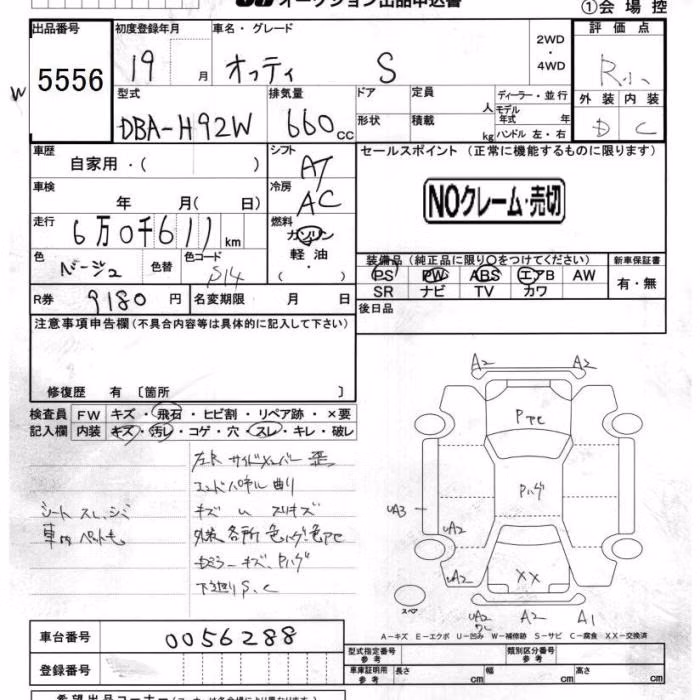 オークション出品申込書
①会場控
出品番号 初度登録年月 車名・グレード 2WD・4WD 評価点
5556 19 月 オッティ S R小
型式 排気量 ドア 定員 人 ディーラー・並行 外装 内装
DBA-H92W 660 CC 形状 積載 kg モデル年式 年 ハンドル 左・右 D C
車歴 シフト セールスポイント(正常に機能するものに限ります)
自家用・( ) AT
車検 冷房
年 月( 日) AC NOクレーム・売切
走行 燃料
6万0千611km ガソリン
軽油
・( )
色 色替 色コード 装備品(純正品に限り○をつけてください) 新車保証書
ベージュ S14 PS PW ABS エアB AW 有・無
SR ナビ TV カワ
R券 9180円 名変期限 月 日 後日品
注意事項申告欄(不具合内容等は具体的に記入して下さい)
修復歴 有〔箇所 〕
検査員 FW キズ・飛石・ヒビ割・リペア跡・×要
記入欄 内装 キズ・汚レ・コゲ・穴・スレ・キレ・破レ
左右 サイドメンバー 歪
エンドパネル 曲り
シート スレ、シミ キズ
車内 ペット毛 外装 各所 色ハゲ、色アセ
キズ、Pハゲ
下廻り S、C
A2 A2
Pアセ
Pハゲ
UA3
UA2
UA2 XX
スペア
UA2 A2 A1
A-キズ E-エクボ U-凹み W-補修跡 S-サビ C-腐食 XX-交換済
車台番号 0056288 型式指定番号 参考 類別区分番号 参考
登録番号 車庫証明用 参考 長さ cm 幅 cm 高さ cm
W